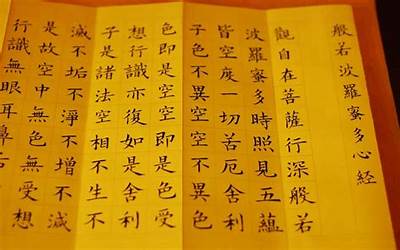 般若波羅蜜多心經
觀自在菩薩行深般若
波羅蜜多時照見五蘊
皆空度一切苦厄舍利
子色不異空空不異色
色即是空空即是色受
想行識亦復如是舍利
子是諸法空相不生不
滅不垢不淨不增不減
是故空中無色無受想
行識無眼耳鼻舌